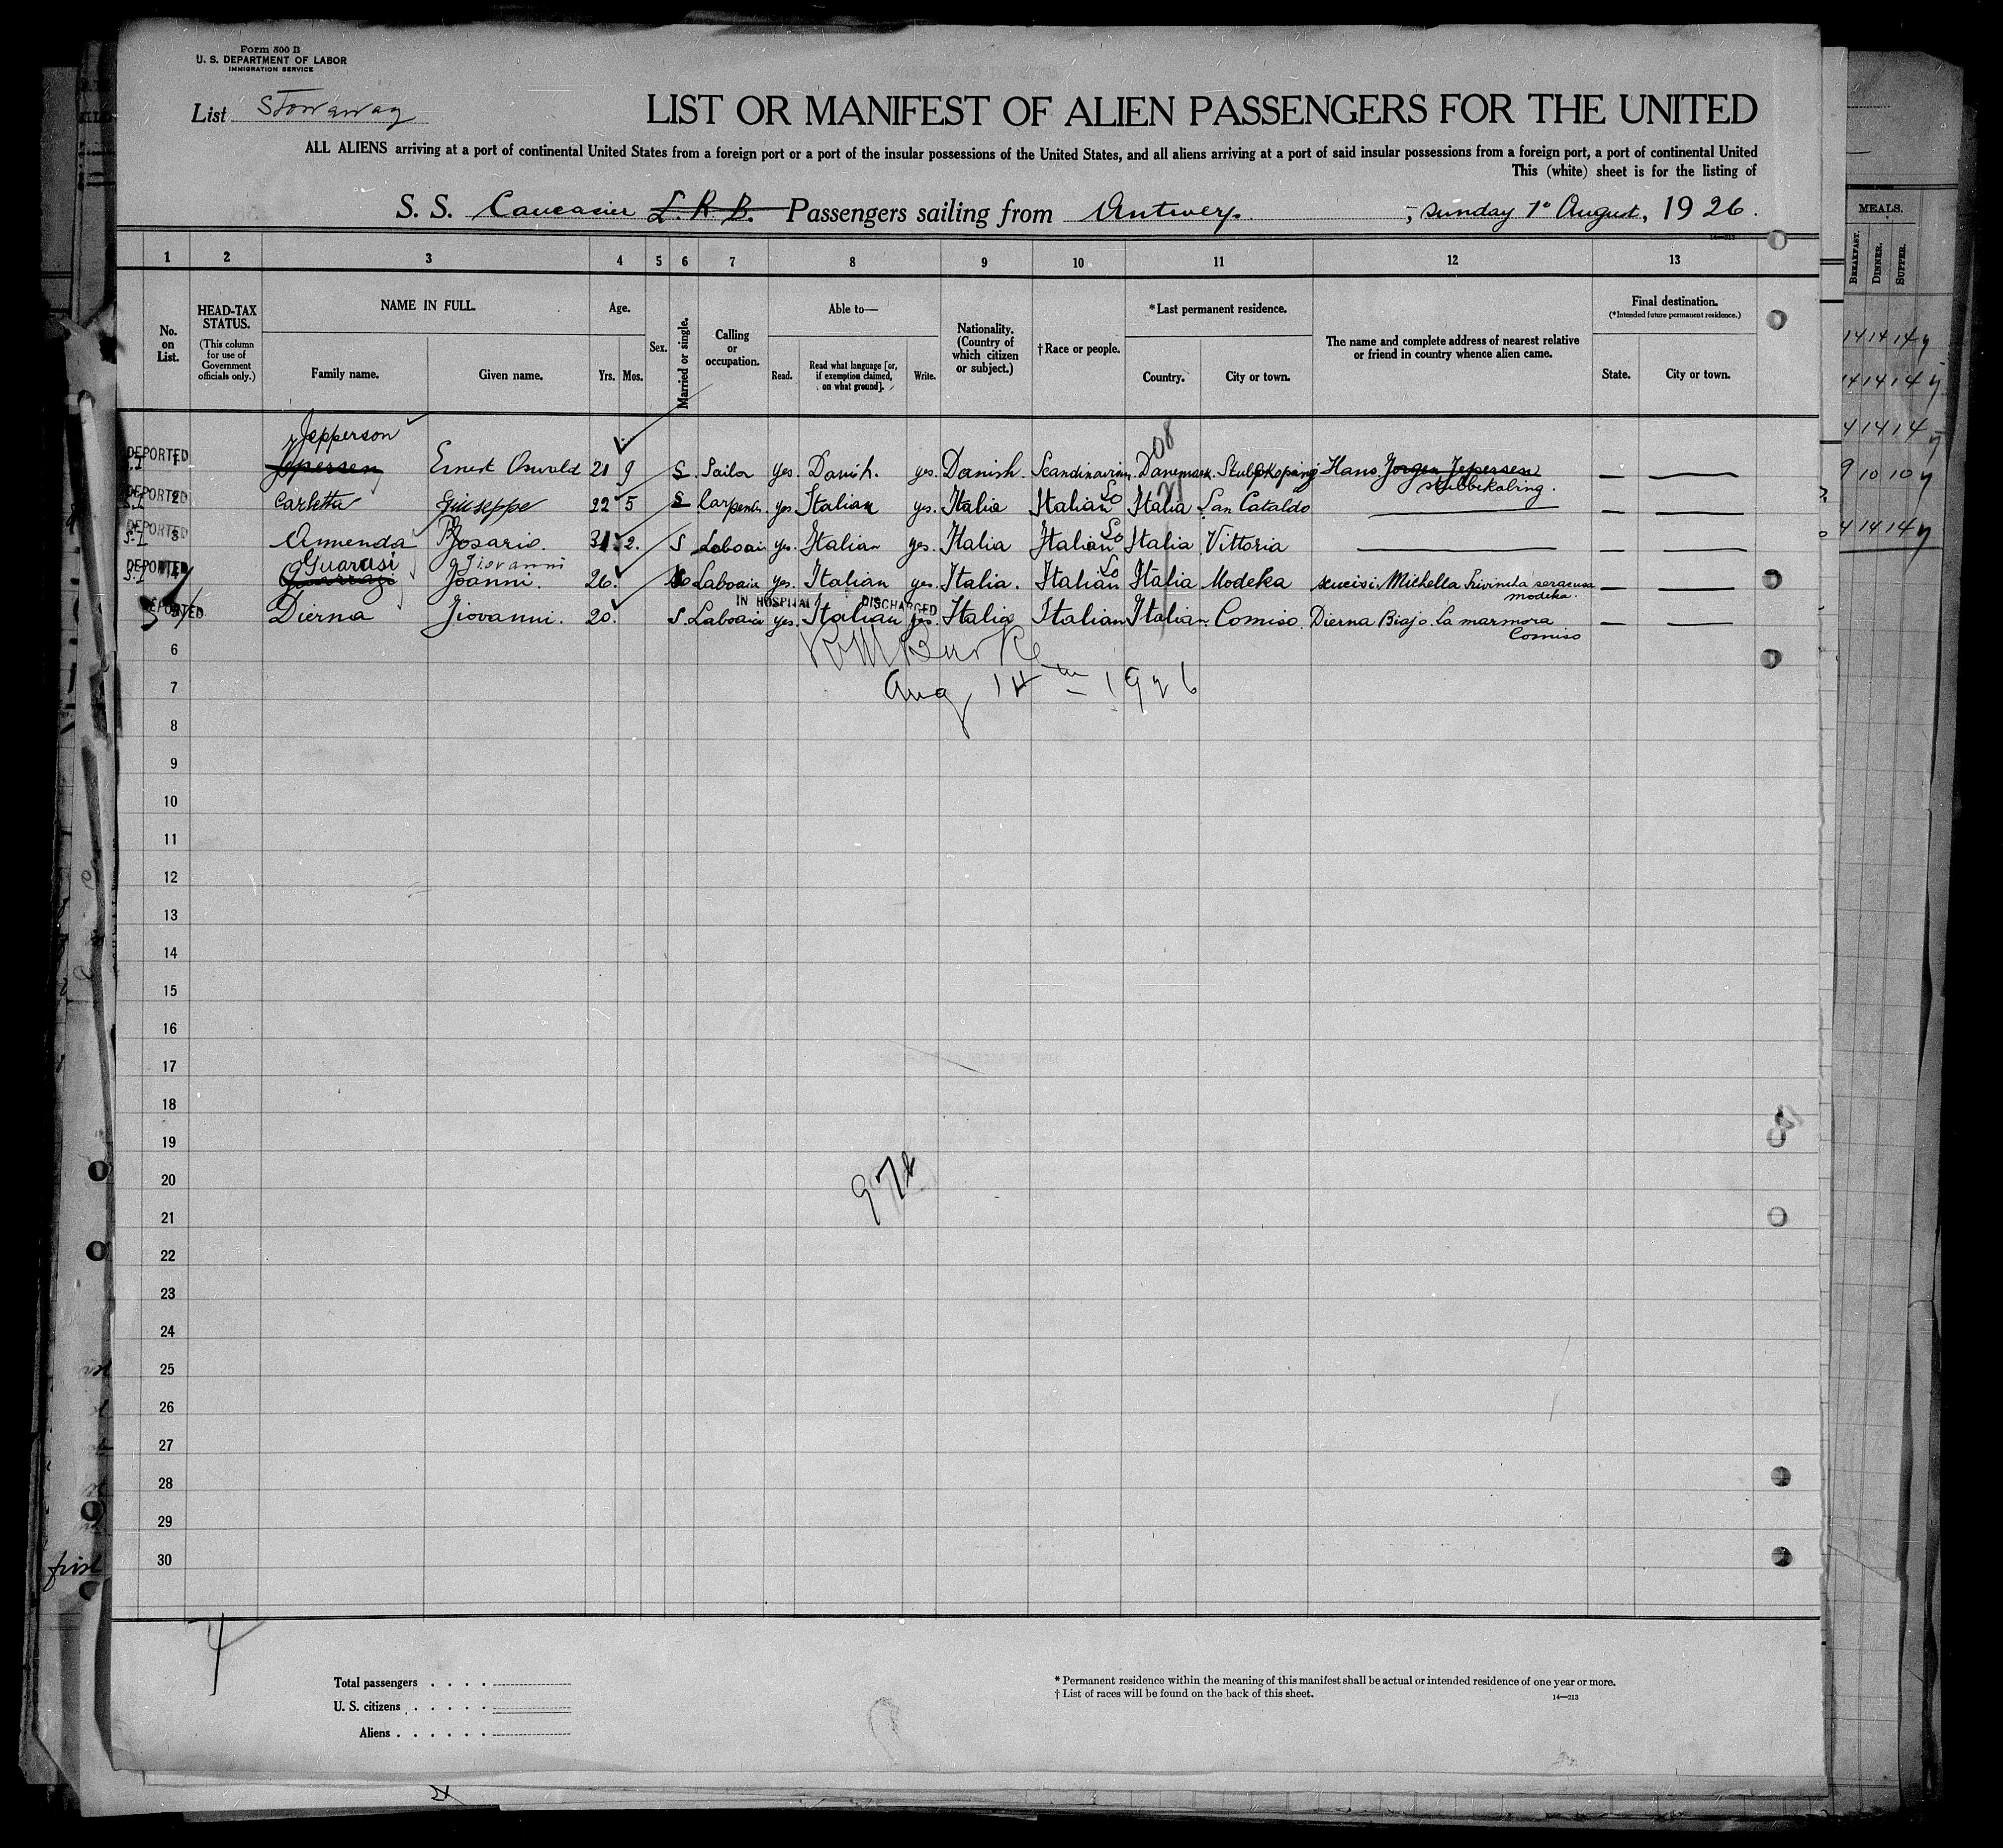 Form 500 B
U. S. DEPARTMENT OF LABOR
IMMIGRATION SERVICE
List Stowaway
LIST OR MANIFEST OF ALIEN PASSENGERS FOR THE UNITED
ALL ALIENS arriving at a port of continental United States from a foreign port or a port of the insular possessions of the United States, and all aliens arriving at a port of said insular possessions from a foreign port, a port of continental United
This (white) sheet is for the listing of
S. S. Caucasier L. R. B. Passengers sailing from Antwerp, Sunday 1° August, 1926.
14—213
1 2 3 4 5 6 7 8 9 10 11 12 13
No. on List.
HEAD-TAX STATUS.
(This column for use of Government officials only.)
NAME IN FULL.
Family name. Given name.
Age.
Yrs. Mos.
Sex.
Married or single.
Calling or occupation.
Able to—
Read. Read what language [or, if exemption claimed, on what ground]. Write.
Nationality. (Country of which citizen or subject.)
†Race or people.
*Last permanent residence.
Country. City or town.
The name and complete address of nearest relative or friend in country whence alien came.
Final destination.
(*Intended future permanent residence.)
State. City or town.
MEALS.
BREAKFAST. DINNER. SUPPER.
Jepperson
DEPORTED S.I 1 Jepersen Ernest Oswald 21 9 S. Sailor yes. Danish. yes. Danish. Scandinavian. Danemark. Stubpkoping Hans Jorgen Jepersen — —
Stubbekobing.
DEPORTED S.I 2 Carletta Giuseppe 22 5 S Carpenter. yes. Italian yes. Italia Italian So Italia San Cataldo — — —
DEPORTED S.I 3 Amenda Rosario. 31 2. S Laboair yes. Italian yes. Italia Italian So Italia Vittoria — — —
Guarasi Giovanni
DEPORTED S.I 4 Guarrazi Joanni. 26. Laboair yes. Italian yes. Italia. Italian So Italia Modeka Michella — —
modeka.
DEPORTED 5 Dierna Giovanni. 20. S. Laboair yes. Italian yes. Italia Italian Italian. Comiso. Dierna Biajo. La marmora — —
Comiso
IN HOSPITAL DISCHARGED
Aug 14th — 1926
6
7
8
9
10
11
12
13
14
15
16
17
18
19
20
21
22
23
24
25
26
27
28
29
30
first
Total passengers . . . .
U. S. citizens . . . . .
Aliens . . . . . .
* Permanent residence within the meaning of this manifest shall be actual or intended residence of one year or more.
† List of races will be found on the back of this sheet.
14—213